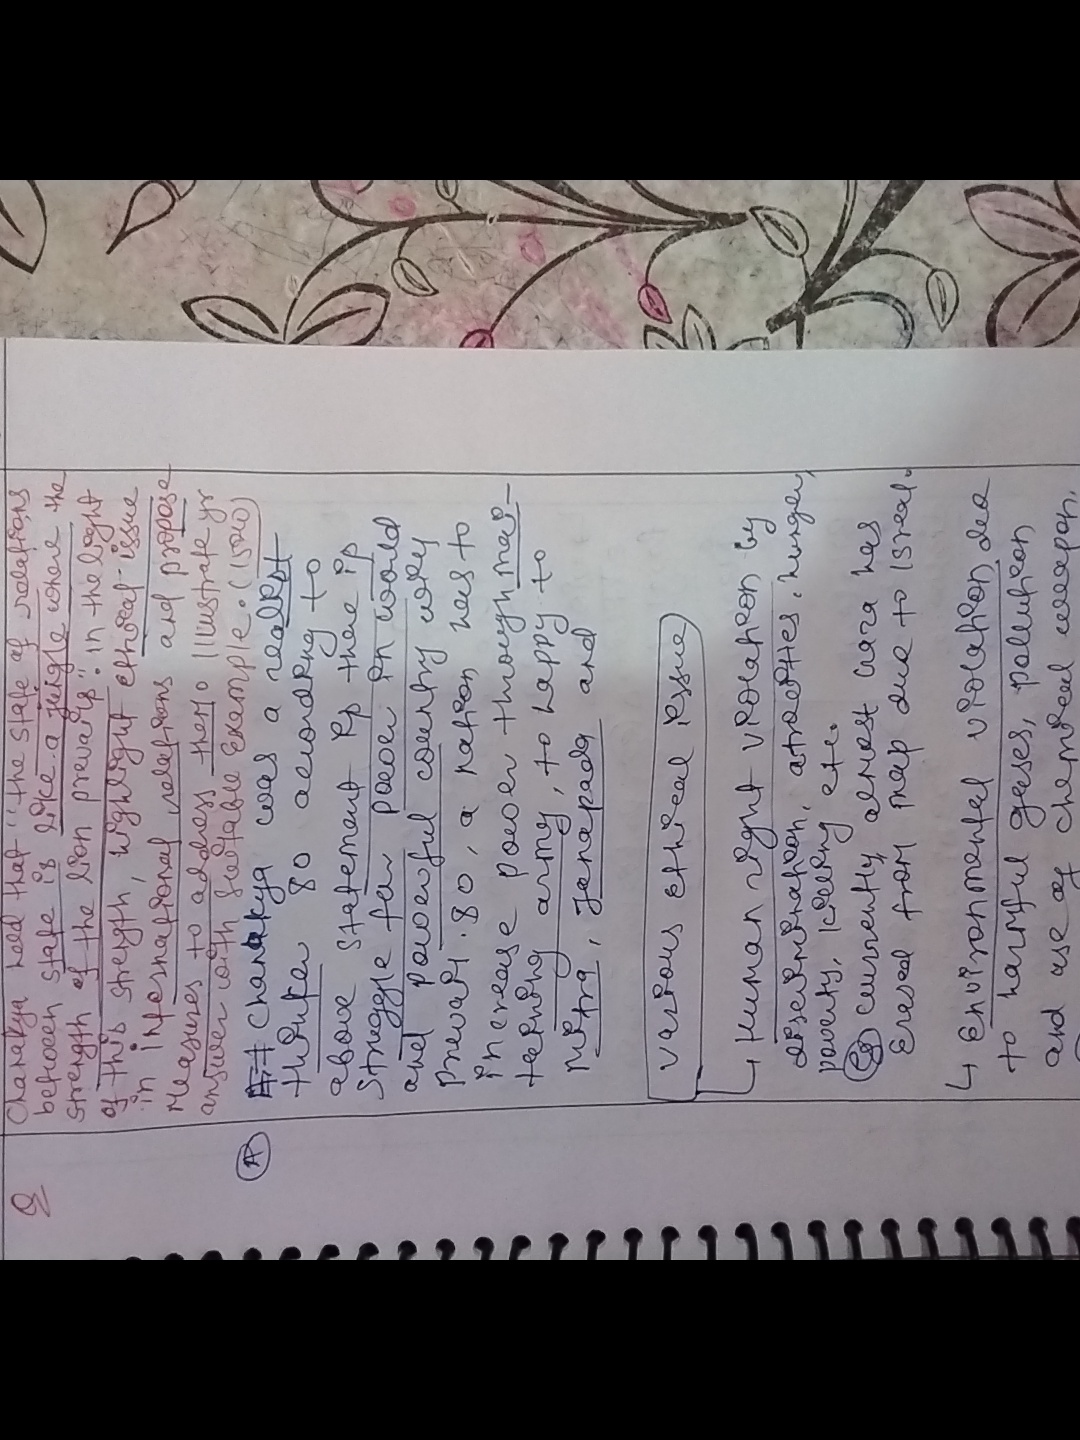 Q Chanakya held that "the state of relations
between state is like a jungle where the
strength of the lion prevails". in the light
of this strength, highlight ethical issue
in international relations and propose
measures to address them. illustrate yr
answer with suitable example. (150w)
(A) Chanakya was a realist
thinker so according to
above statement there is
struggle for power in world
and powerful country
prevail. so, a nation has to
increase power through main-
taining army, to happy to
mitra, Janapada and
various ethical issue
↳ Human right violation by
discrimination, atrocities. hunger,
poverty, etc.
Eg currently almost Gaza has
Erased from map due to isreal.
↳ Environmental violation due
to harmful gases, pollution
and use of chemical weapon.